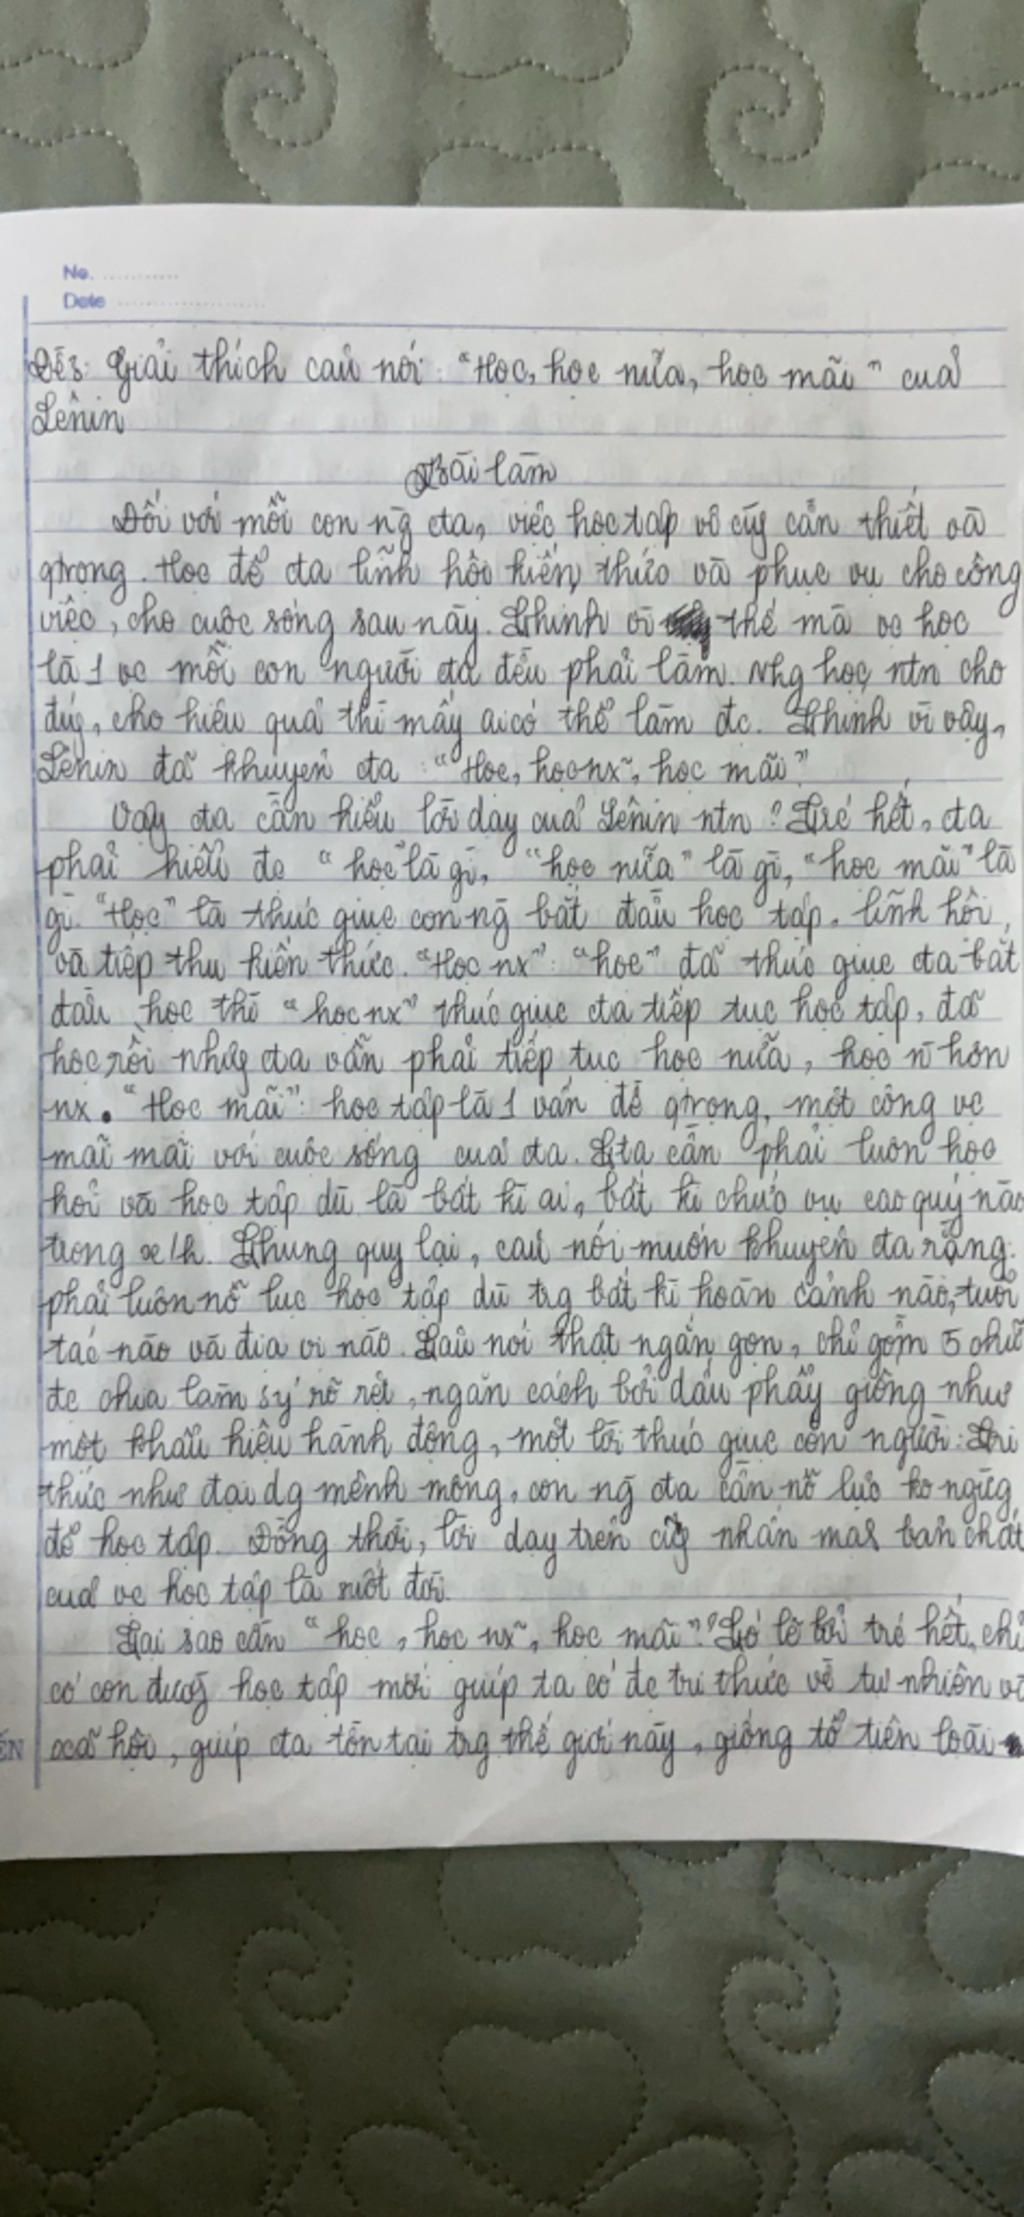 No. ............
Date ......................
Đề3: Giải thích câu nói: "Học, học nữa, học mãi" của
Lênin
Bài làm
Đối với mỗi con ng̀ cta, việc học tập vô cùg cần thiết và
qtrọng. Học để cta lĩnh hội kiến thức và phục vụ cho công
việc, cho cuộc sống sau này. Chính vì thế mà vc học
là 1 vc mỗi con người cta đều phải làm. Nhg học ntn cho
đúg, cho hiệu quả thì mấy ai có thể làm đc. Chính vì vậy,
Lênin đã khuyên cta: "Học, học nx~, học mãi"
Vậy cta cần hiểu lời dạy của Lênin ntn? Trc hết, cta
phải hiểu đc "học" là gì, "học nữa" là gì, "học mãi" là
gì. "Học" là thúc giục con ng̀ bắt đầu học tập, lĩnh hội
và tiếp thu kiến thức. "Học nx": "học" đã thúc giục cta bắt
đầu học thì "học nx" thúc giục cta tiếp tục học tập, đã
học rồi nhưg cta vẫn phải tiếp tục học nữa, học n` hơn
nx. "Học mãi": học tập là 1 vấn đề qtrọng, một công vc
mãi mãi với cuộc sống của cta. Cta cần phải luôn học
hỏi và học tập dù là bất kì ai, bất kì chức vụ cao quý nào
trong x/h. Chung quy lại, câu nói muốn khuyên cta rằng:
phải luôn nỗ lực học tập dù trg bất kì hoàn cảnh nào, tuổi
tác nào và địa vị nào. Câu nói thật ngắn gọn, chỉ gồm 5 chữ
đc chia làm 3 ý rõ rệt, ngăn cách bởi dấu phẩy giống như
một khẩu hiệu hành động, một lời thúc giục con người: Tri
thức như đại dg mênh mông, con ng̀ cta cần nỗ lực ko ngừg
để học tập. Đồng thời, lời dạy trên cũg nhấn mạh bản chất
của vc học tập là suốt đời.
Tại sao cần "học, học nx~, học mãi"? Có lẽ bởi trc hết, chỉ
có con đườg học tập mới giúp ta có đc tri thức về tự nhiên và
xã hội, giúp cta tồn tại trg thế giới này, giống tổ tiên loài